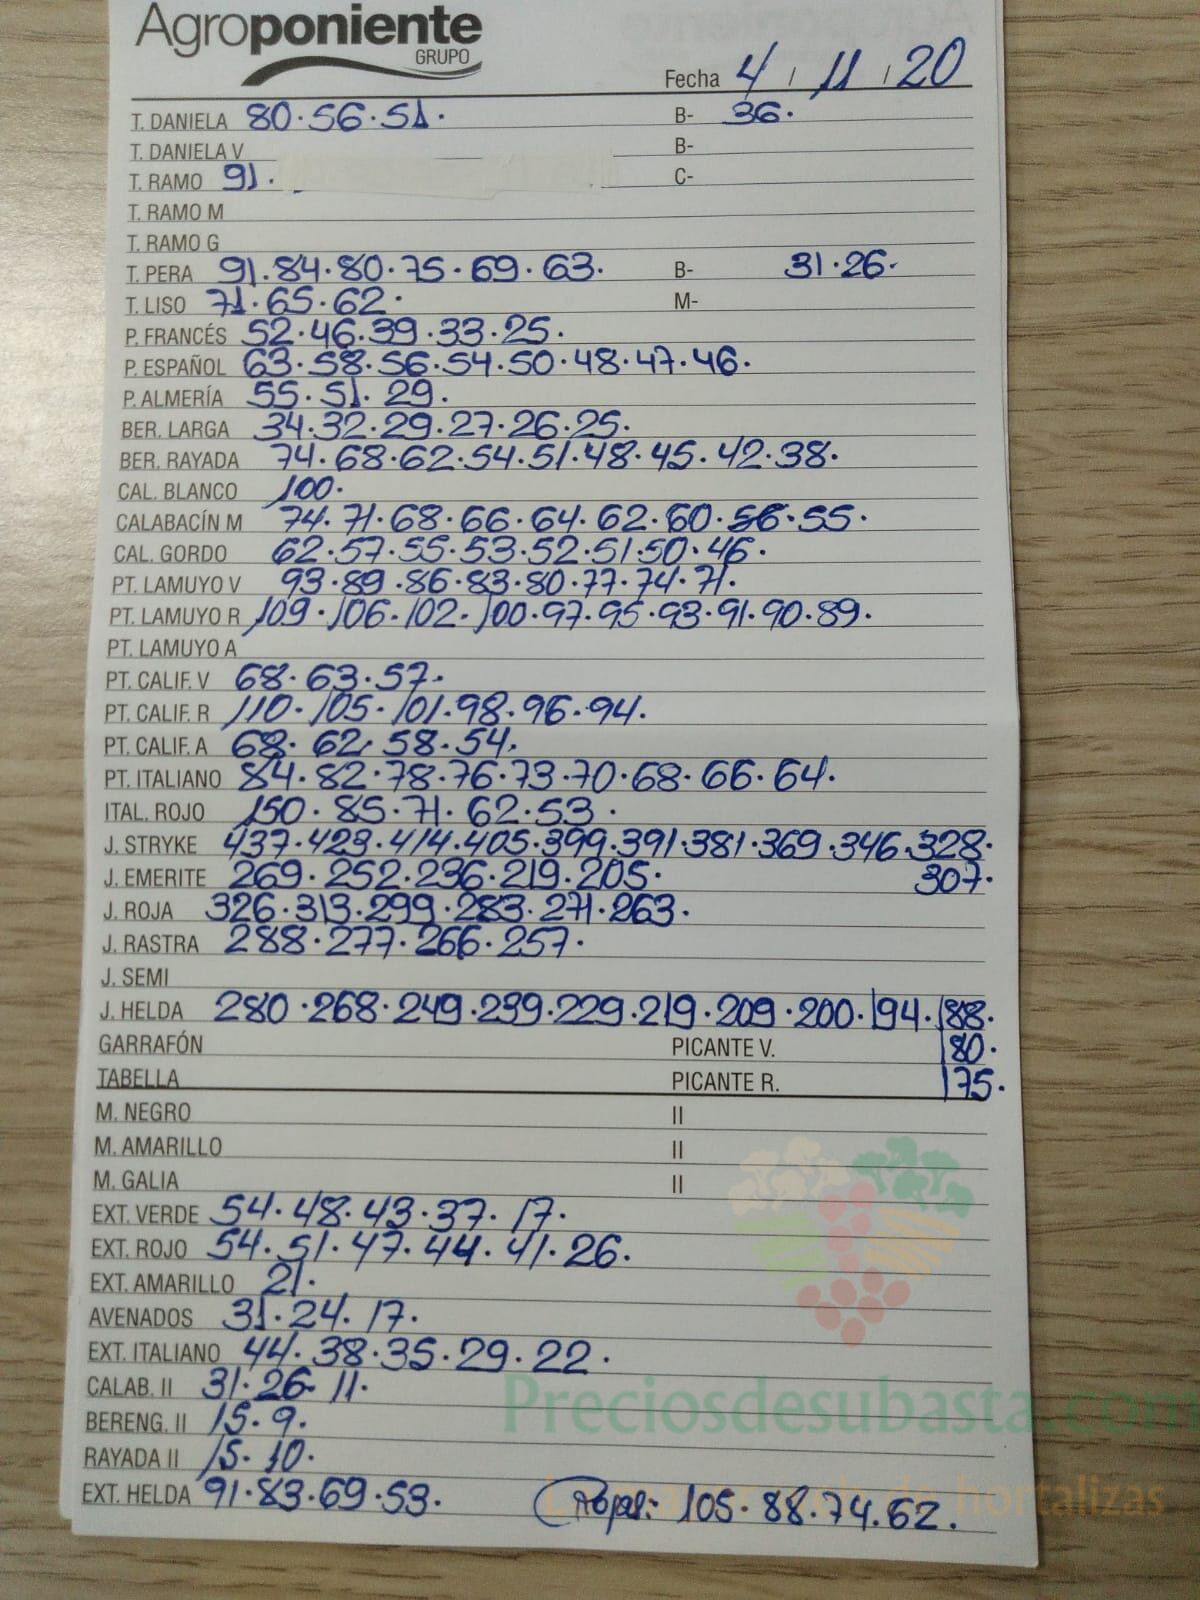 Agroponiente
GRUPO
Fecha 4 / 11 / 20
T. DANIELA 80·56·51· B- 36·
T. DANIELA V B-
T. RAMO 91· C-
T. RAMO M
T. RAMO G
T. PERA 91·84·80·75·69·63· B- 31·26·
T. LISO 71·65·62· M-
P. FRANCÉS 52·46·39·33·25·
P. ESPAÑOL 63·58·56·54·50·48·47·46·
P. ALMERÍA 55·51·29·
BER. LARGA 34·32·29·27·26·25·
BER. RAYADA 74·68·62·54·51·48·45·42·38·
CAL. BLANCO 100·
CALABACÍN M 74·71·68·66·64·62·60·56·55·
CAL. GORDO 62·57·55·53·52·51·50·46·
PT. LAMUYO V 93·89·86·83·80·77·74·71·
PT. LAMUYO R 109·106·102·100·97·95·93·91·90·89·
PT. LAMUYO A
PT. CALIF. V 68·63·57·
PT. CALIF. R 110·105·101·98·96·94·
PT. CALIF. A 68·62·58·54·
PT. ITALIANO 84·82·78·76·73·70·68·66·64·
ITAL. ROJO 150·85·71·62·53·
J. STRYKE 437·423·414·405·399·391·381·369·346·328·
J. EMERITE 269·252·236·219·205· 307·
J. ROJA 326·313·299·283·271·263·
J. RASTRA 288·277·266·257·
J. SEMI
J. HELDA 280·268·249·239·229·219·209·200·194·188·
GARRAFÓN PICANTE V. 180·
TABELLA PICANTE R. 175·
M. NEGRO II
M. AMARILLO II
M. GALIA II
EXT. VERDE 54·48·43·37·17·
EXT. ROJO 54·51·47·44·41·26·
EXT. AMARILLO 21·
AVENADOS 31·24·17·
EXT. ITALIANO 44·38·35·29·22·
CALAB. II 31·26·11·
Preciosdesubasta.com
BERENG. II 15·9·
RAYADA II 15·10·
EXT. HELDA 91·83·69·53· 105·88·74·62·
hortalizas